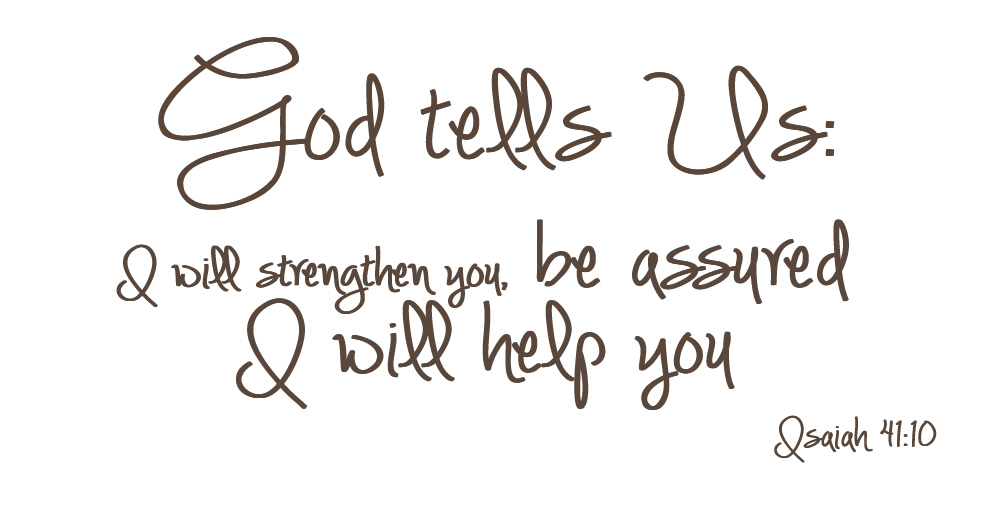 God tells Us:
I will strengthen you, be assured
I will help you
Isaiah 41:10